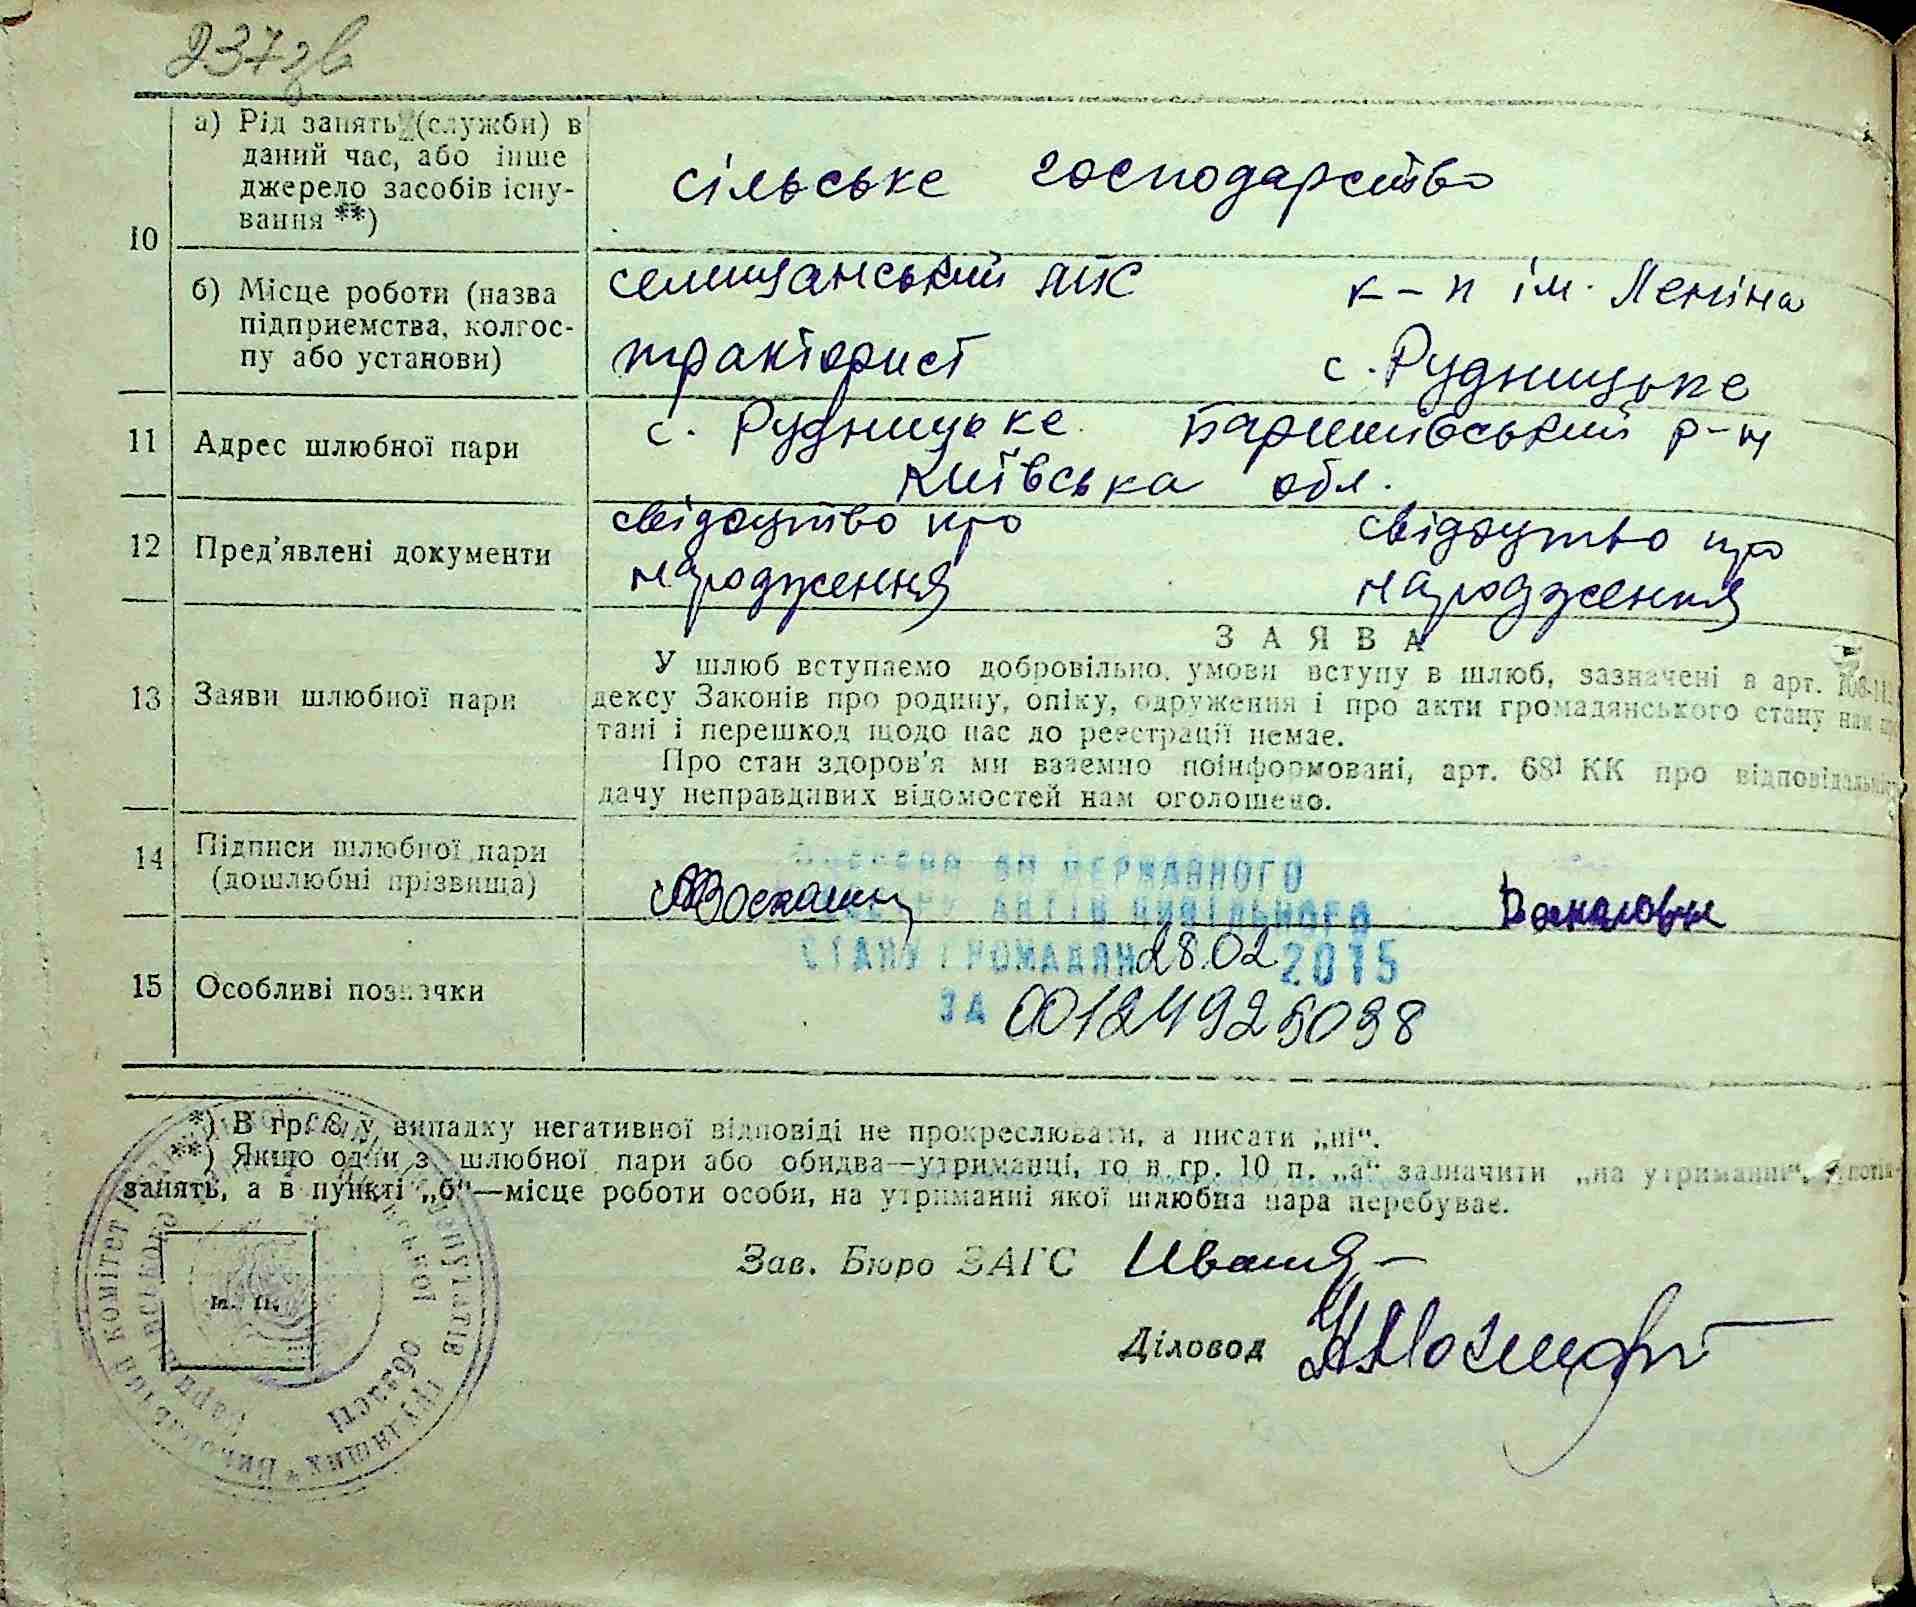 237зв
10
а) Рід занять (служби) в
даний час, або інше
джерело засобів існу-
вання **)
сільське господарство
б) Місце роботи (назва
підприємства, колгос-
пу або установи)
селищанський
тракторист
к-п ім. Леніна
с. Рудницьке
11
Адрес шлюбної пари
с. Рудницьке Баришівський р-н
Київська обл.
12
Пред'явлені документи
свідоцтво про
народження
свідоцтво про
народження
13
Заяви шлюбної пари
ЗАЯВА
У шлюб вступаємо добровільно, умови вступу в шлюб, зазначені в арт.
дексу Законів про родину, опіку, одруження і про акти громадянського стану нам
тані і перешкод щодо нас до реєстрації немає.
Про стан здоров'я ми взаємно поінформовані, арт. 68¹ КК про відповідальність
дачу неправдивих відомостей нам оголошено.
14
Підписи шлюбної пари
(дошлюбні прізвища)
ДЕРЖАВНОГО
АКТІВ ЦИВІЛЬНОГО
СТАНУ ГРОМАДЯН 28.02 2015
ЗА 00124925098
15
Особливі позначки
*) В гр. 8 у випадку негативної відповіді не прокреслювати, а писати „ні“.
**) Якщо один з шлюбної пари або обидва—утриманці, то в гр. 10 п. „а“ зазначити „на утриманні“,
занять, а в пункті „б“—місце роботи особи, на утриманні якої шлюбна пара перебуває.
Зав. Бюро ЗАГС
Діловод
Виконавчий комітет
депутатів трудящих
області